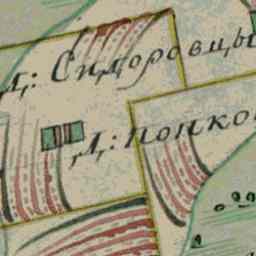 Д: Сидоровцы
Д: Попко